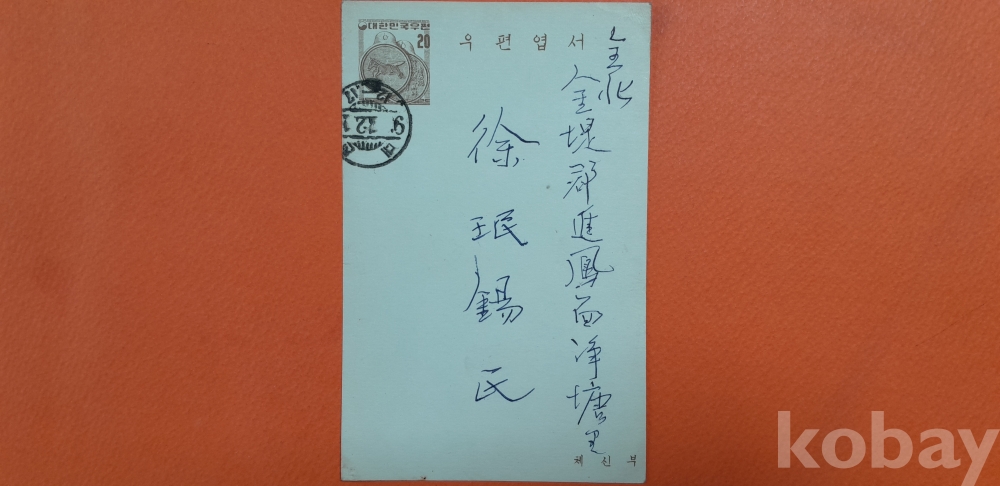 대한민국우표
20
우편엽서
全北
金堤郡進鳳面淨塘里
徐珉錫氏
체신부
kobay